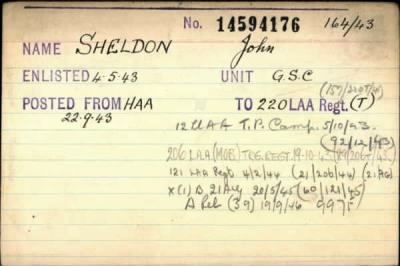 No. 14594176 164/43
NAME SHELDON John
ENLISTED 4.5.43 UNIT G.S.C
(157/220T/43)
POSTED FROM HAA TO 220 LAA Regt. (T)
22.9.43
12 LAA T.P. Camp. 5/10/43.
(92/12/43)
206 LAA (MOB) TRG. REGT. 19.10.43 (
121 LAA Regt 4/2/44 (21/206/44) (21 AG)
X(1) B, 21 Aug 20/5/45 (60/121/45)
A Feb (39) 19/9/46